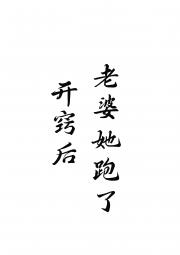 开窍后
老婆她跑了